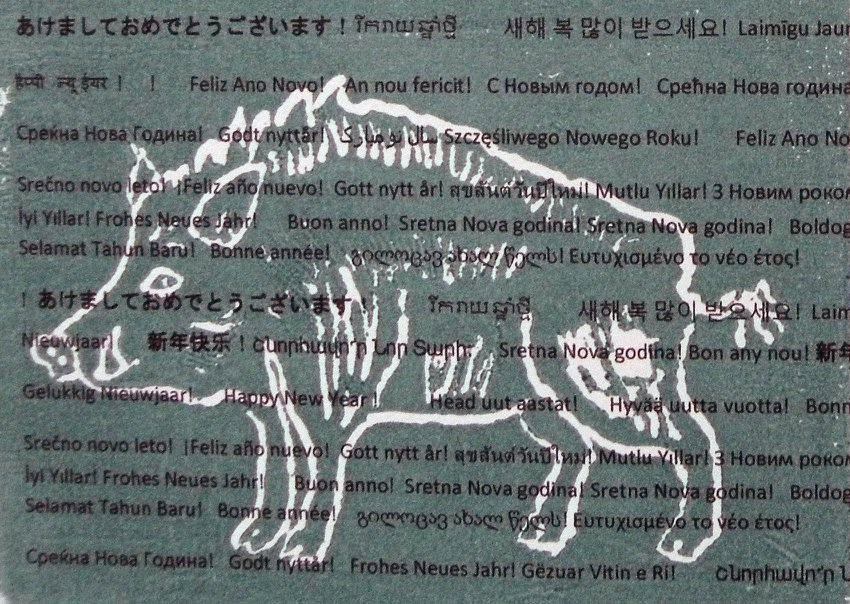 あけましておめでとうございます！ រីករាយឆ្នាំថ្មី 새해 복 많이 받으세요! Laimīgu Jaun
हैप्पी न्यू ईयर ! ! Feliz Ano Novo! An nou fericit! С Новым годом! Срећна Нова година
Среќна Нова Година! Godt nyttår! سال نو مبارک Szczęśliwego Nowego Roku! Feliz Ano No
Srečno novo leto! ¡Feliz año nuevo! Gott nytt år! สุขสันต์วันปีใหม่! Mutlu Yıllar! З Новим роком
İyi Yıllar! Frohes Neues Jahr! Buon anno! Sretna Nova godina! Sretna Nova godina! Boldog
Selamat Tahun Baru! Bonne année! გილოცავ ახალ წელს! Ευτυχισμένο το νέο έτος!
! あけましておめでとうございます！ រីករាយឆ្នាំថ្មី 새해 복 많이 받으세요! Laim
Nieuwjaar! 新年快乐！Շնորհավո՛ր Նոր Տարի: Sretna Nova godina! Bon any nou! 新年
Gelukkig Nieuwjaar! Happy New Year ! Head uut aastat! Hyvää uutta vuotta! Bonn
Srečno novo leto! ¡Feliz año nuevo! Gott nytt år! สุขสันต์วันปีใหม่! Mutlu Yıllar! З Новим роком
İyi Yıllar! Frohes Neues Jahr! Buon anno! Sretna Nova godina! Sretna Nova godina! Boldog
Selamat Tahun Baru! Bonne année! გილოცავ ახალ წელს! Ευτυχισμένο το νέο έτος!
Среќна Нова Година! Godt nyttår! Frohes Neues Jahr! Gëzuar Vitin e Ri! Շնորհավո՛ր Ն